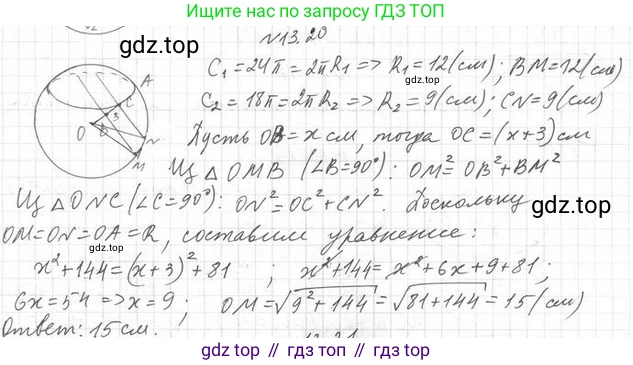 Ищите нас по запросу ГДЗ ТОП
N13.20
gdz.top
C₁ = 24π = 2πR₁ => R₁ = 12(см); BM = 12(см)
C₂ = 18π = 2πR₂ => R₂ = 9(см); CN = 9(см)
A
C
3
O
B
N
M
Пусть OB = x см, тогда OC = (x+3) см
Из △OMB (∠B = 90°): OM² = OB² + BM²
Из △ONC (∠C = 90°): ON² = OC² + CN². Поскольку
gdz.top
OM = ON = OA = R, составим уравнение:
gdz.top
x² + 144 = (x+3)² + 81 ; x² + 144 = x² + 6x + 9 + 81 ;
6x = 54 => x = 9 ; OM = √9² + 144 = √81 + 144 = 15(см)
Ответ: 15 см.
gdz top // гдз топ // gdz.top